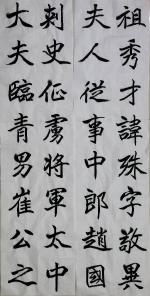 祖秀才諱殊字敬異
夫人從事中郎趙國
刺史征虜將軍太中
大夫臨青男崔公之